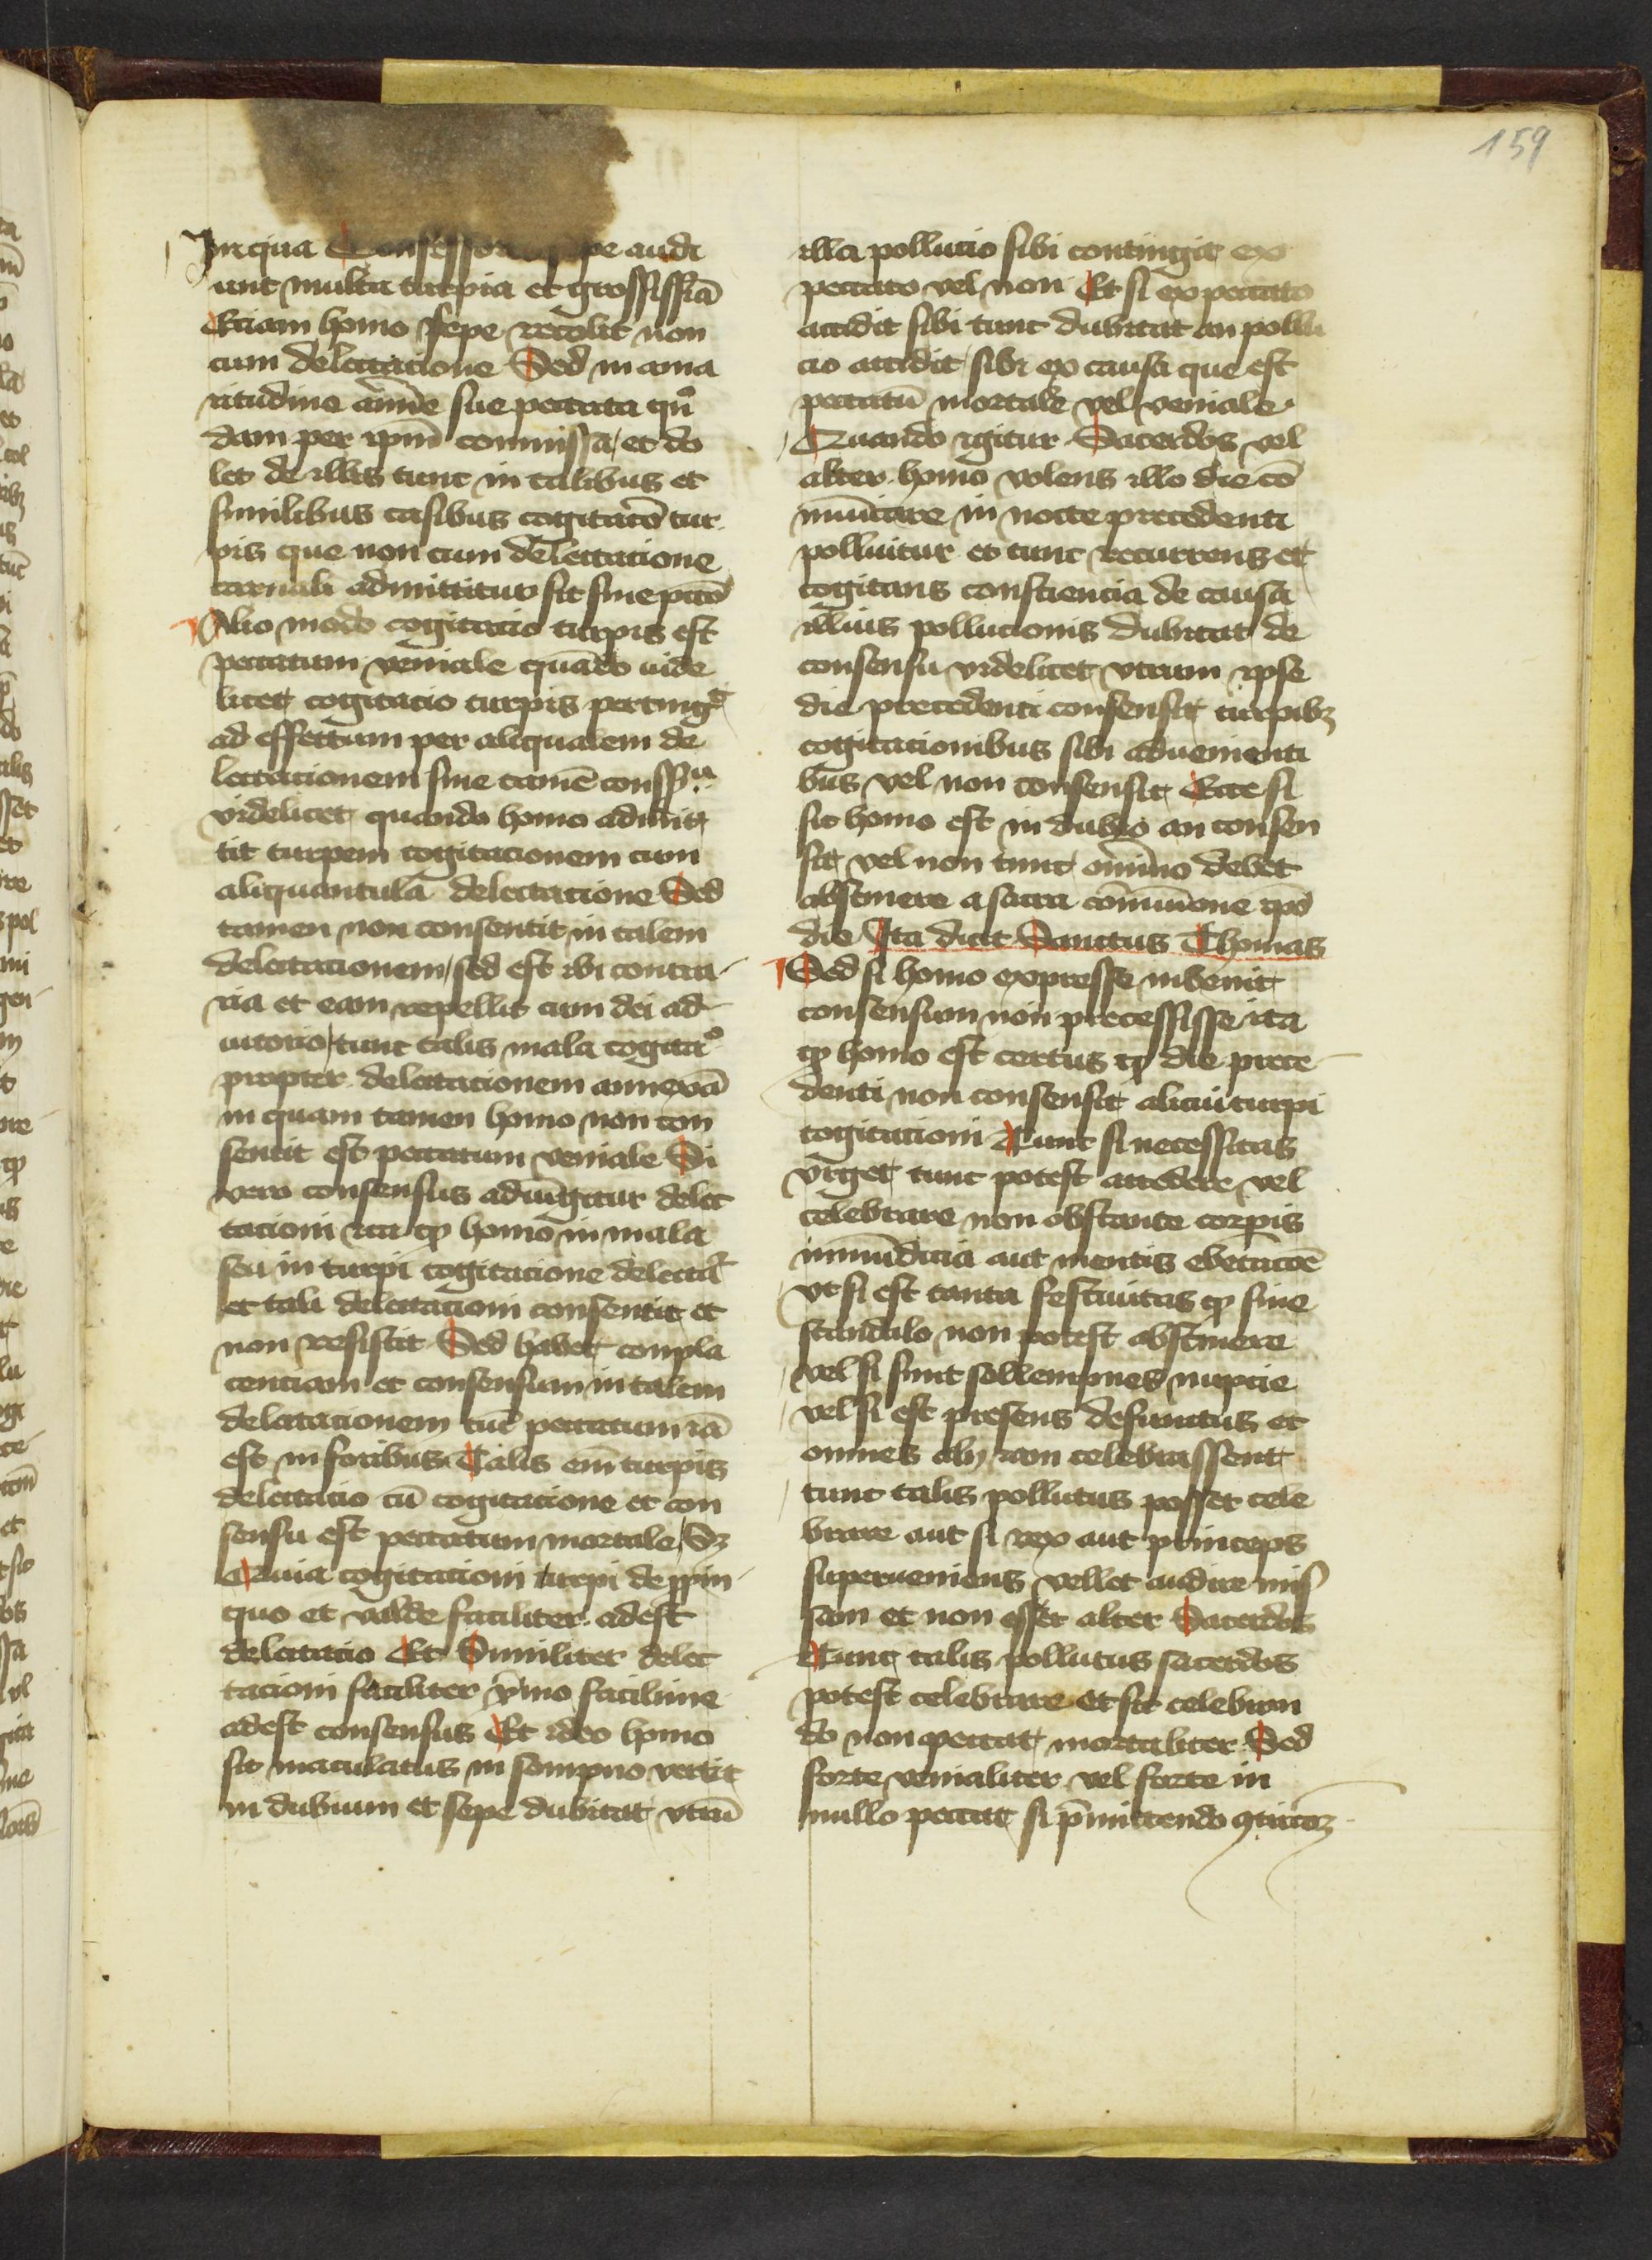 159
In qua Confessores sepe audi
unt multa turpia et grossissīā
Etiam homo sepe recolit non
cum delectacione Sed in ama
ritudine aīme sue peccata qn̄
dam per ipm̄ commissa et do
let de illis tunc in talibus et
similibus casibus cogitatō tur
pis que non cum delectatione
carnali admittitur sit sine pctō
Alio modo cogitacio turpis est
peccatum veniale quādo uide
licet cogitacio turpis pertingᵗ
ad effectum per aliqualem de
lectacionem sine tamē conssu
videlicet quando homo admit
tit turpem cogitacionem cum
aliquantula delectacione Sed
tamen non consentit in talem
delectacionem sed est ibi contra
ria et eam repellit cum dei ad
iutorio tunc talis mala cogitaᵒ
propter delectacionem annexā
in quam tamen homo non con
sentit est peccatum veniale Si
vero consensus adiūgitur delec
tacioni ita qp homo in mala
seu in turpi cogitacione delectat᷑
et tali delectacioni consentit et
non resistit Sed habet compla
cenciam et consensum in talem
delectacionem tūc peccatum iā
est in foribus Talis em̄ turpis
delectacio cū cogitacione et con
sensu est peccatum mortale Sꝫ
Quia cogitacioni turpi de ppin
quo et valde faciliter adest
delectacio Et Similiter delec
tacioni faciliter ymo facilime
adest consensus Et ideo homo
sic maculatus in sompno vertit
in dubium et sepe dubitat vtrū
illa pollucio sibi contingit ex
peccato vel non Et si ex peccato
accidit sibi tunc dubitat an pollu
cio accidit sibi ex causa que est
peccatū mortale vel veniale
Quando igitur Sacerdos vel
alter homo volens illo die cō
mūicare in nocte precedenti
polluitur et tunc recurrens et
cogitans consciencia de causa
illius pollucionis dubitat de
consensu videlicet vtrum ipse
die precedenti consensit turpibꝫ
cogitacionibus sibi aduenienti
bus vel non consensit Ecce si
sic homo est in dubio an consen
sit vel non tunc om̄ino debet
abstinere a sacra cōmūione ipō
die Ita dicit Sanctus Thomas
Sed si homo expresse inuenit
consensum non precessisse ita
qp homo est certus qp die prece
denti non consensit alicui turpi
cogitacioni Tunc si necessitas
vrget tunc potest accedere vel
celebrare non obstante corpis
inmūdicia aut mentis ebetacōe
vt si est tanta festiuitas qp sine
scandalo non potest abstinere
vel si sunt sollempnes nupcie
vel si est presens defunctus et
omnes alij iam celebrassent
tunc talis pollutus posset cele
brare aut si rex aut princeps
superueniens vellet audire mis
sam et non esset alter Sacerdos
Tunc talis pollutus sacerdos
potest celebrare et sic celebran
do non peccat mortaliter Sed
forte venialiter vel forte in
nullo peccat si p̄mittendo ꝯtricōꝫ